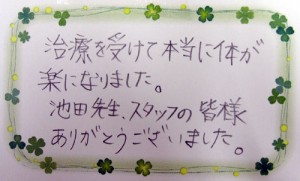 治療を受けて本当に体が
楽になりました。
池田先生、スタッフの皆様
ありがとうございました。